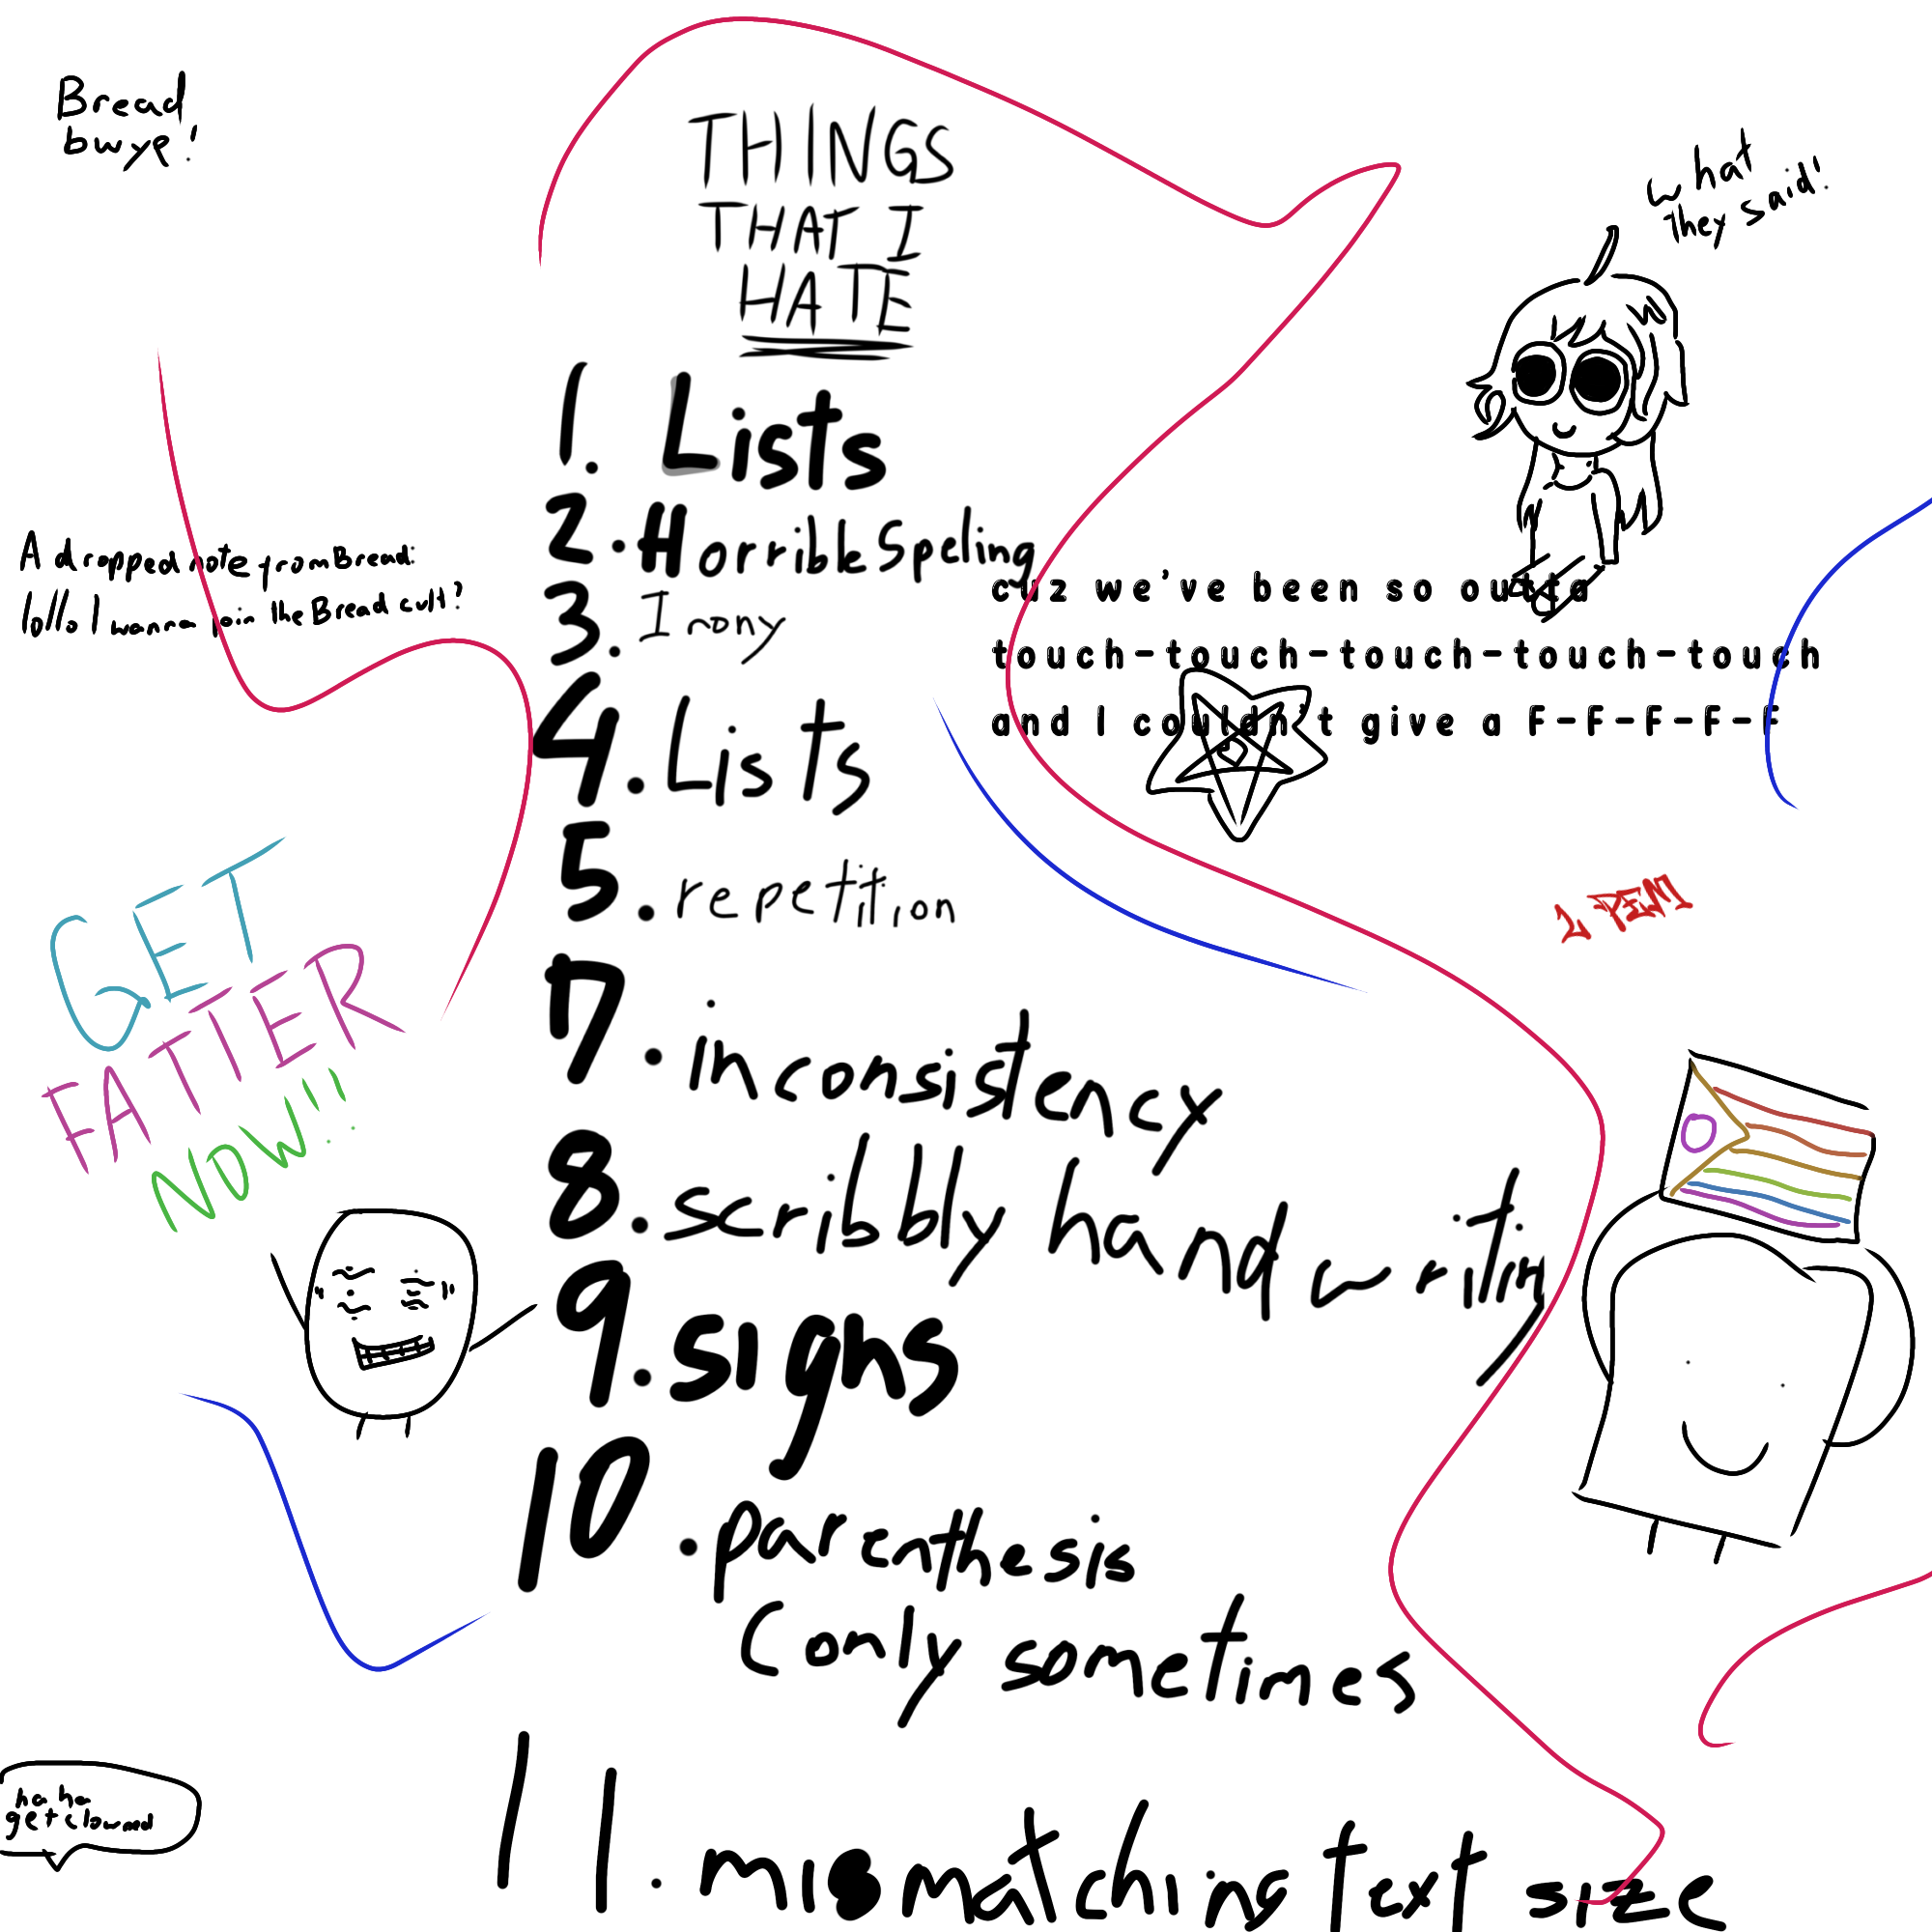 Bread
bwye!
THINGS
THAT I
HATE
what
they said!
1. Lists
2. Horrible Speling
3. Irony
4. Lists
5. repetition
7. inconsistency
8. scribbly hand writing
9. sighs
10. parenthesis
(only sometimes
11. mismatching text size
A dropped note from Bread:
lollo I wanna join the Bread cult!
cuz we've been so outta
touch-touch-touch-touch-touch
and I couldn't give a F-F-F-F-F
GET
FATTER
NOW!!
haha
get clowned